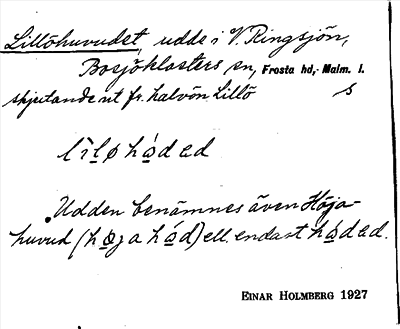 Lillöhuvudet, udde i V. Ringsjön,
Bosjöklosters sn, Frosta hd, Malm. l.
skjutande ut fr. halvön Lillö s
lìlø hǻdəd
Udden benämnes även Höja-
huvud (høja hǻd) ell. endast hǻdəd.
EINAR HOLMBERG 1927